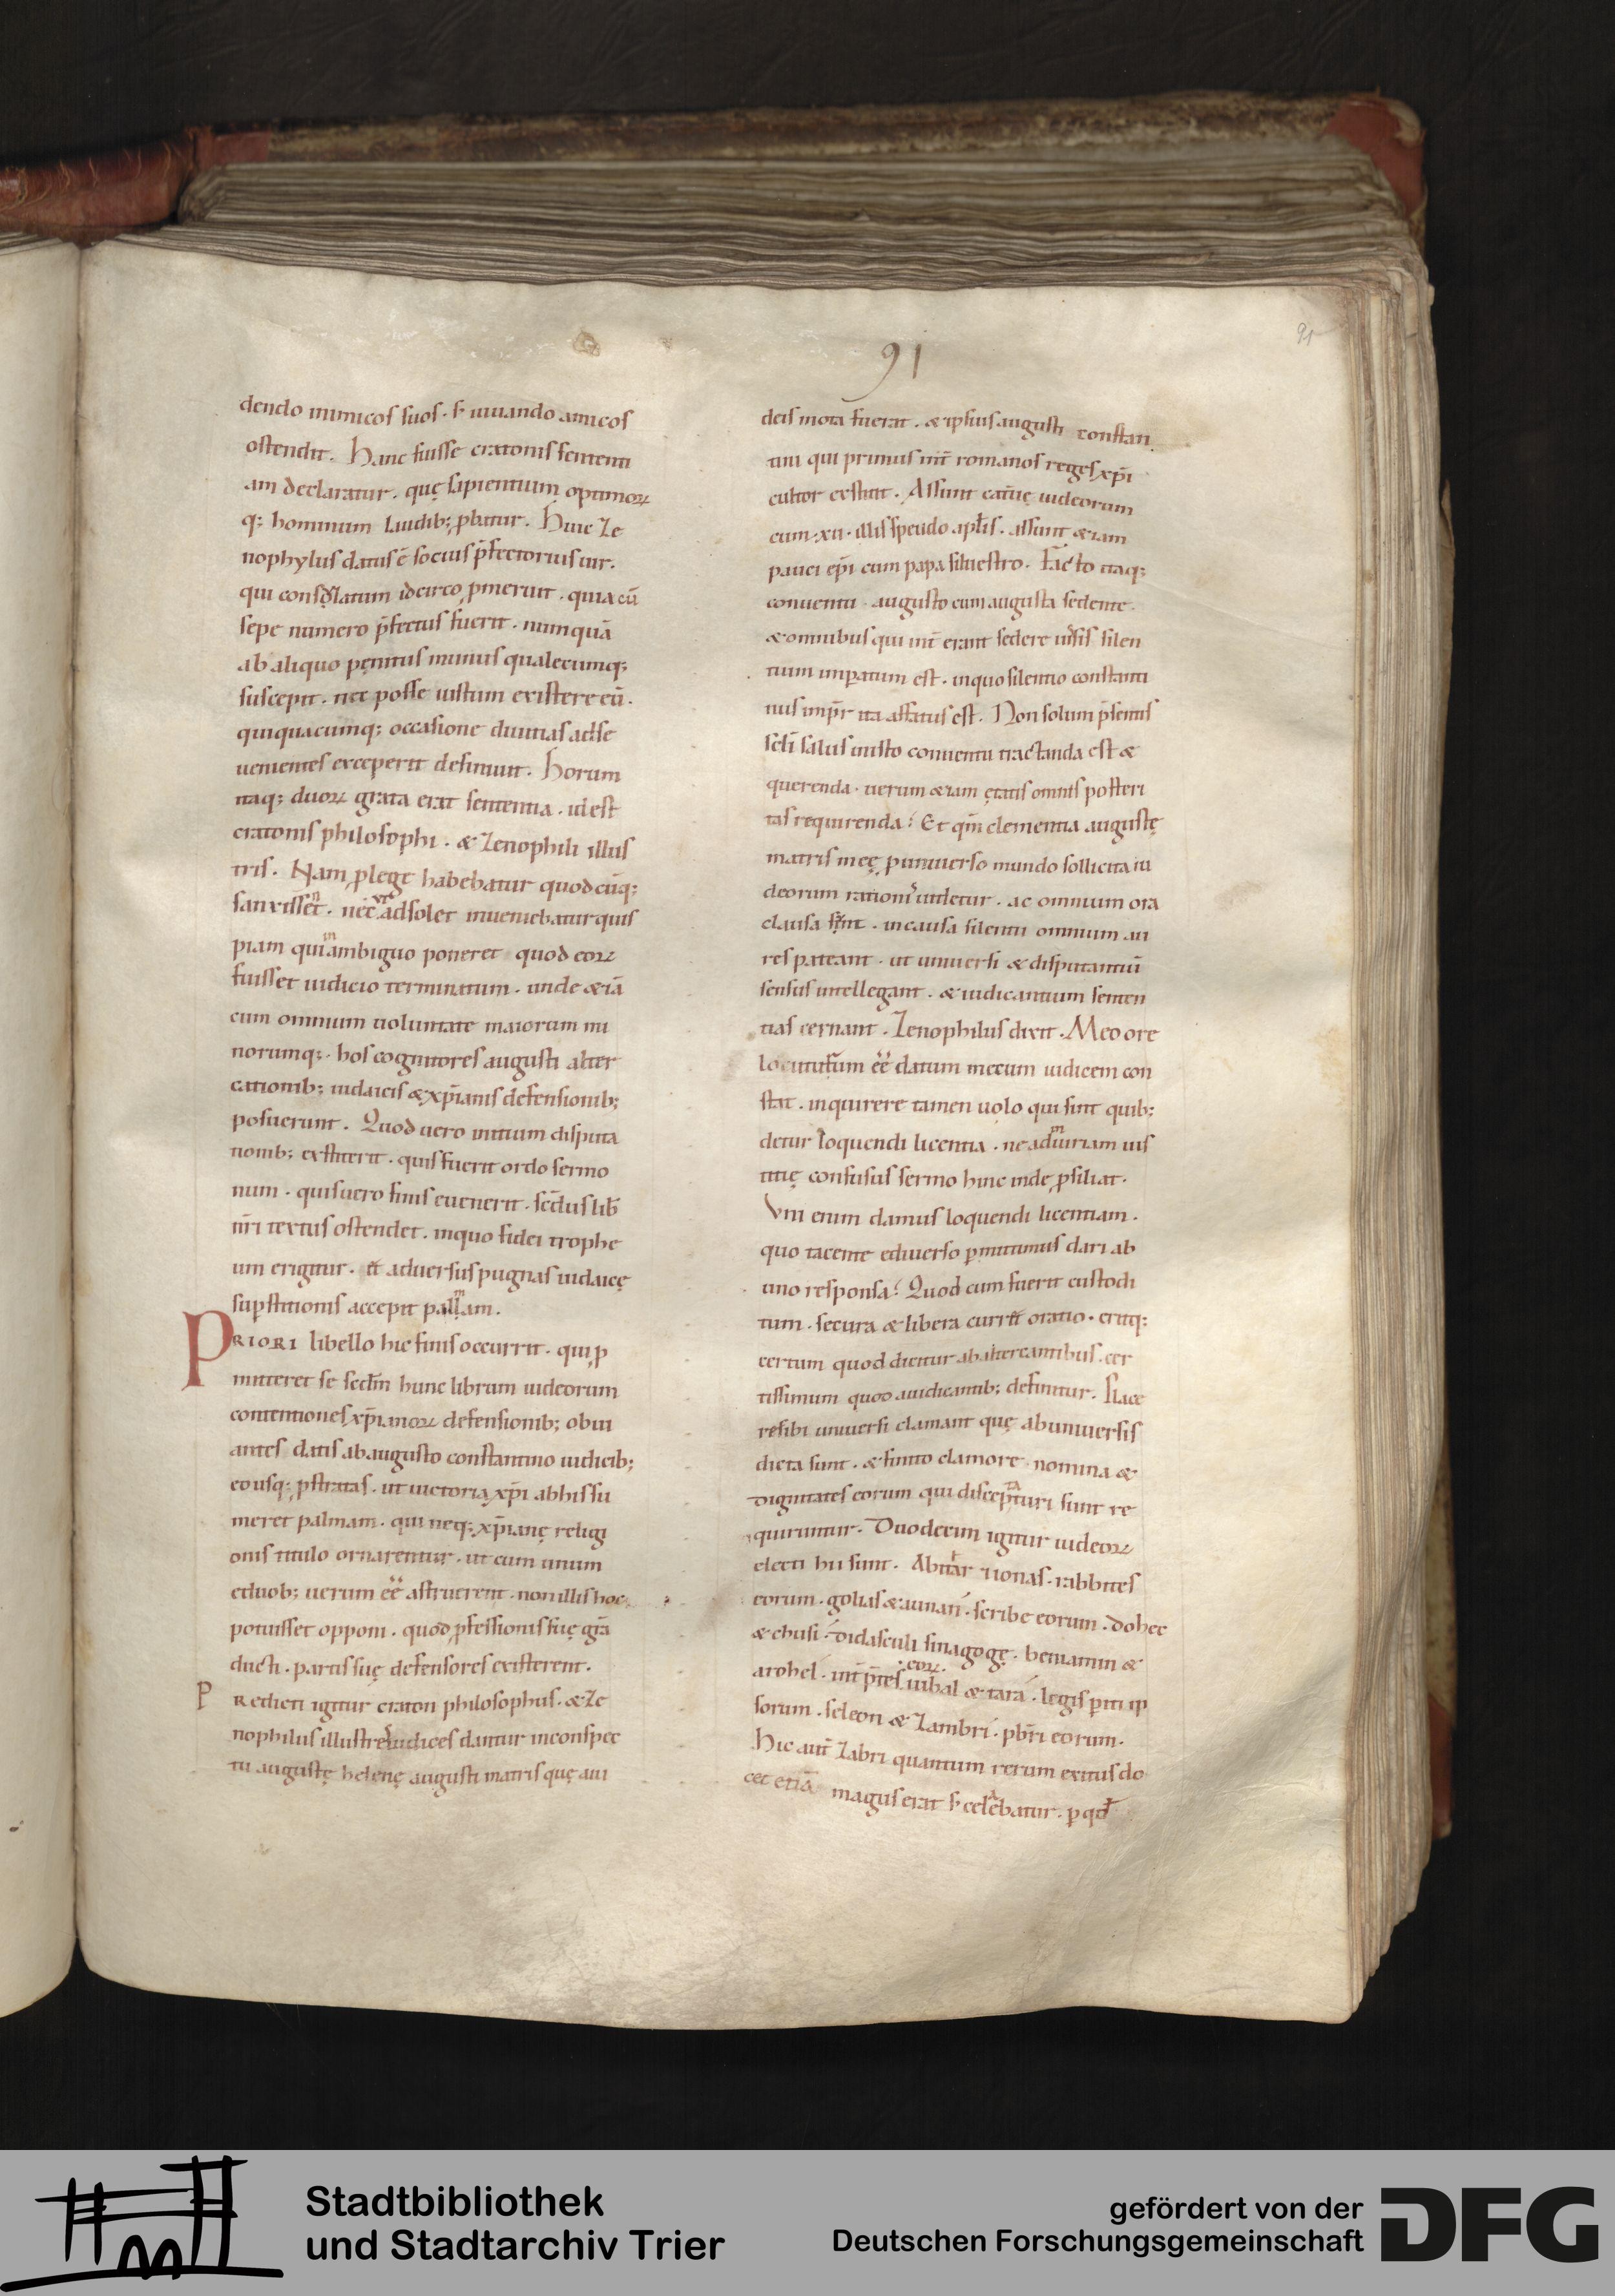 91
91
dendo inimicos suos · s; iuuando amicos
ostendit. Hanc fuisse cratonis sententi
am declaratur · quę sapientium optimoꝝ
q; hominum laudib; ꝓbatur. Huic Ze
nophylus datus ē socius p̄fectorius uir.
qui consulatum idcirco ꝓmeruit · quia cū
sepe numero p̄fectus fuerit · numquā
ab aliquo penitus munus qualecumq;
suscepit · nec posse iustum existere eū ·
qui quacumq; occasione diuitias ad se
uenientes exceperit definiuit. Horum
itaq; duoꝝ grata erat sententia · id est
cratonis philosophi · & Zenophili illus
tris. Nam ꝓ lege habebatur quod cūq;
sanxissent · nec ut adsolet inueniebatur quis
piam qui in ambiguo poneret quod eoꝝ
fuisset iudicio terminatum · unde & iā
cum omnium uoluntate maiorum mi
norumq; · hos cognitores augusti alter
cationib; iudaicis & xp̄ianis defensionib;
posuerunt. Quod uero initium disputa
tionib; exstiterit · quis fuerit ordo sermo
num · quis uero finis euenerit · sc̄dus lib̄
nr̄i textus ostendet · in quo fidei trophe
um erigitur · et aduersus pugnas iudaicę
suꝑstitionis accepit palmam.
PRIORI libello hic finis occurrit · qui ꝓ
mitteret se sed̄m hunc librum iudeorum
contentiones xp̄ianoꝝ defensionib; obui
antes datis ab augusto constantino iudicib;
eousq; ꝓstratas · ut uictoria xp̄i ab his su
meret palmam · qui neq; xp̄ianę religi
onis titulo ornarentur · ut cum unum
e duob; uerum eē astruerent · non illis hoc
potuisset opponi · quod ꝓfessionis suę gr̄a
ducti · partis suę defensores existerent.
PRedicti igitur craton philosophus · & Ze
nophilus illustres iudices dantur in conspec
tu augustę helenę augusti matris quę a iu
deis mota fuerat · & ipsius augusti constan
tini qui primus int̄ romanos reges xp̄i
cultor exstitit · Assunt cat̄uę iudeorum
cum · xii · illis speudo apl̄is · assunt & iam
pauci ep̄i cum papa siluestro · Facto itaq;
conuentu · augusto cum augusta sedente ·
& omnibus qui int̄ erant sedere iussis silen
tium imꝑatum est · in quo silentio constanti
nus imp̄r ita affatus est. Non solum p̄sentis
sc̄li salus in isto conuentu tractanda est &
querenda · uerum & iam ętatis omnis posteri
tas requirenda; Et qm̄ clementia augustę
matris meę ꝓ uniuerso mundo sollicita iu
deorum rationi uidetur · ac omnium ora
clausa sint · in causa silentii omnium au
res pateant · ut uniuersi & disputantiū
sensus intellegant · & iudicantium senten
tias cernant · Zenophilus dixit · Meo ore
locuturum eē datum mecum iudicem con
stat · inquirere tamen uolo qui sint quib;
detur loquendi licentia · ne ad iniuriam ius
titię confusus sermo hinc inde ꝓsiliat ·
Vni enim damus loquendi licentiam ·
quo tacente e diuerso ꝑmittimus dari ab
uno responsa; Quod cum fuerit custodi
tum · secura & libera curret oratio · eritq;
certum quod dicitur ab altercantibus · cer
tissimum quod a iudicantib; definitur. Place
re sibi uniuersi clamant quę ab uniuersis
dicta sunt · & finito clamore nomina &
dignitates eorum qui disceptaturi sunt re
quiruntur. Duodecim igitur iudeoꝝ
electi hii sunt. Abiatar · & ionas · rabbites
eorum · golias & aunan · scribe eorum · dohec
& chusi · didasculi sinagogę · beniamin &
arohel · int̄p̄tes eoꝝ · iubal & tara · legis ꝑiti ip
sorum · seleon & Zambri · pbr̄i eorum.
Hic aut̄ Zābri quantum rerum exitus do
cet etiā magus erat s; celabatur · ꝓ qd̄
Stadtbibliothek
und Stadtarchiv Trier
gefördert von der
Deutschen Forschungsgemeinschaft
DFG